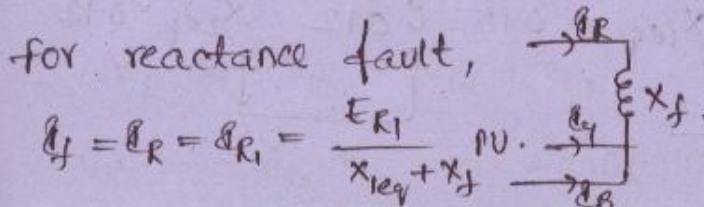 for reactance fault,
I_R
I_f = I_R = I_R1 = E_R1 / (X_1eq + X_f) PU.
X_f
I_y
I_B